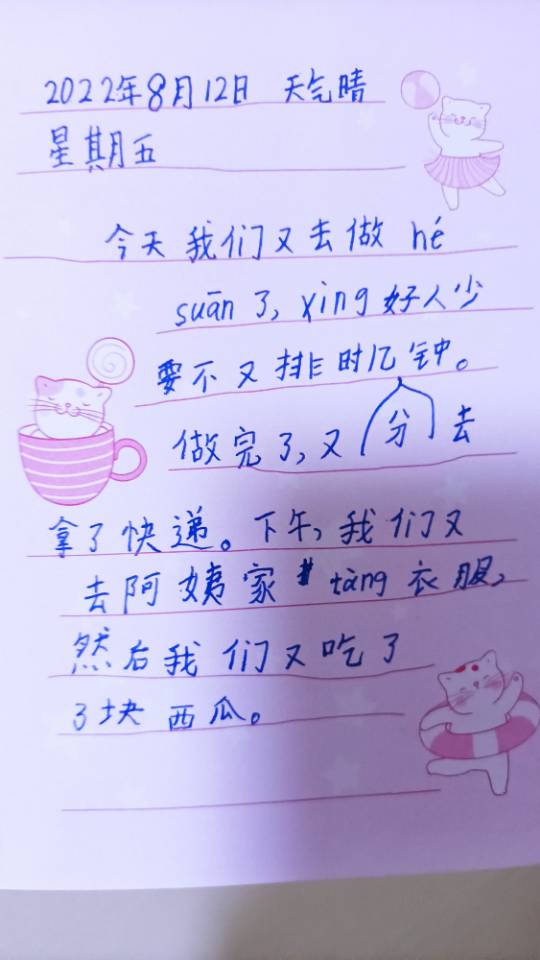 2022年8月12日 天气晴
星期五
今天我们又去做 hé
suān 了, xìng好人少
要不又排时几钟。
做完了,又 分 去
拿了快递。下午,我们又
去阿姨家 tàng 衣服,
然后我们又吃了
3块西瓜。